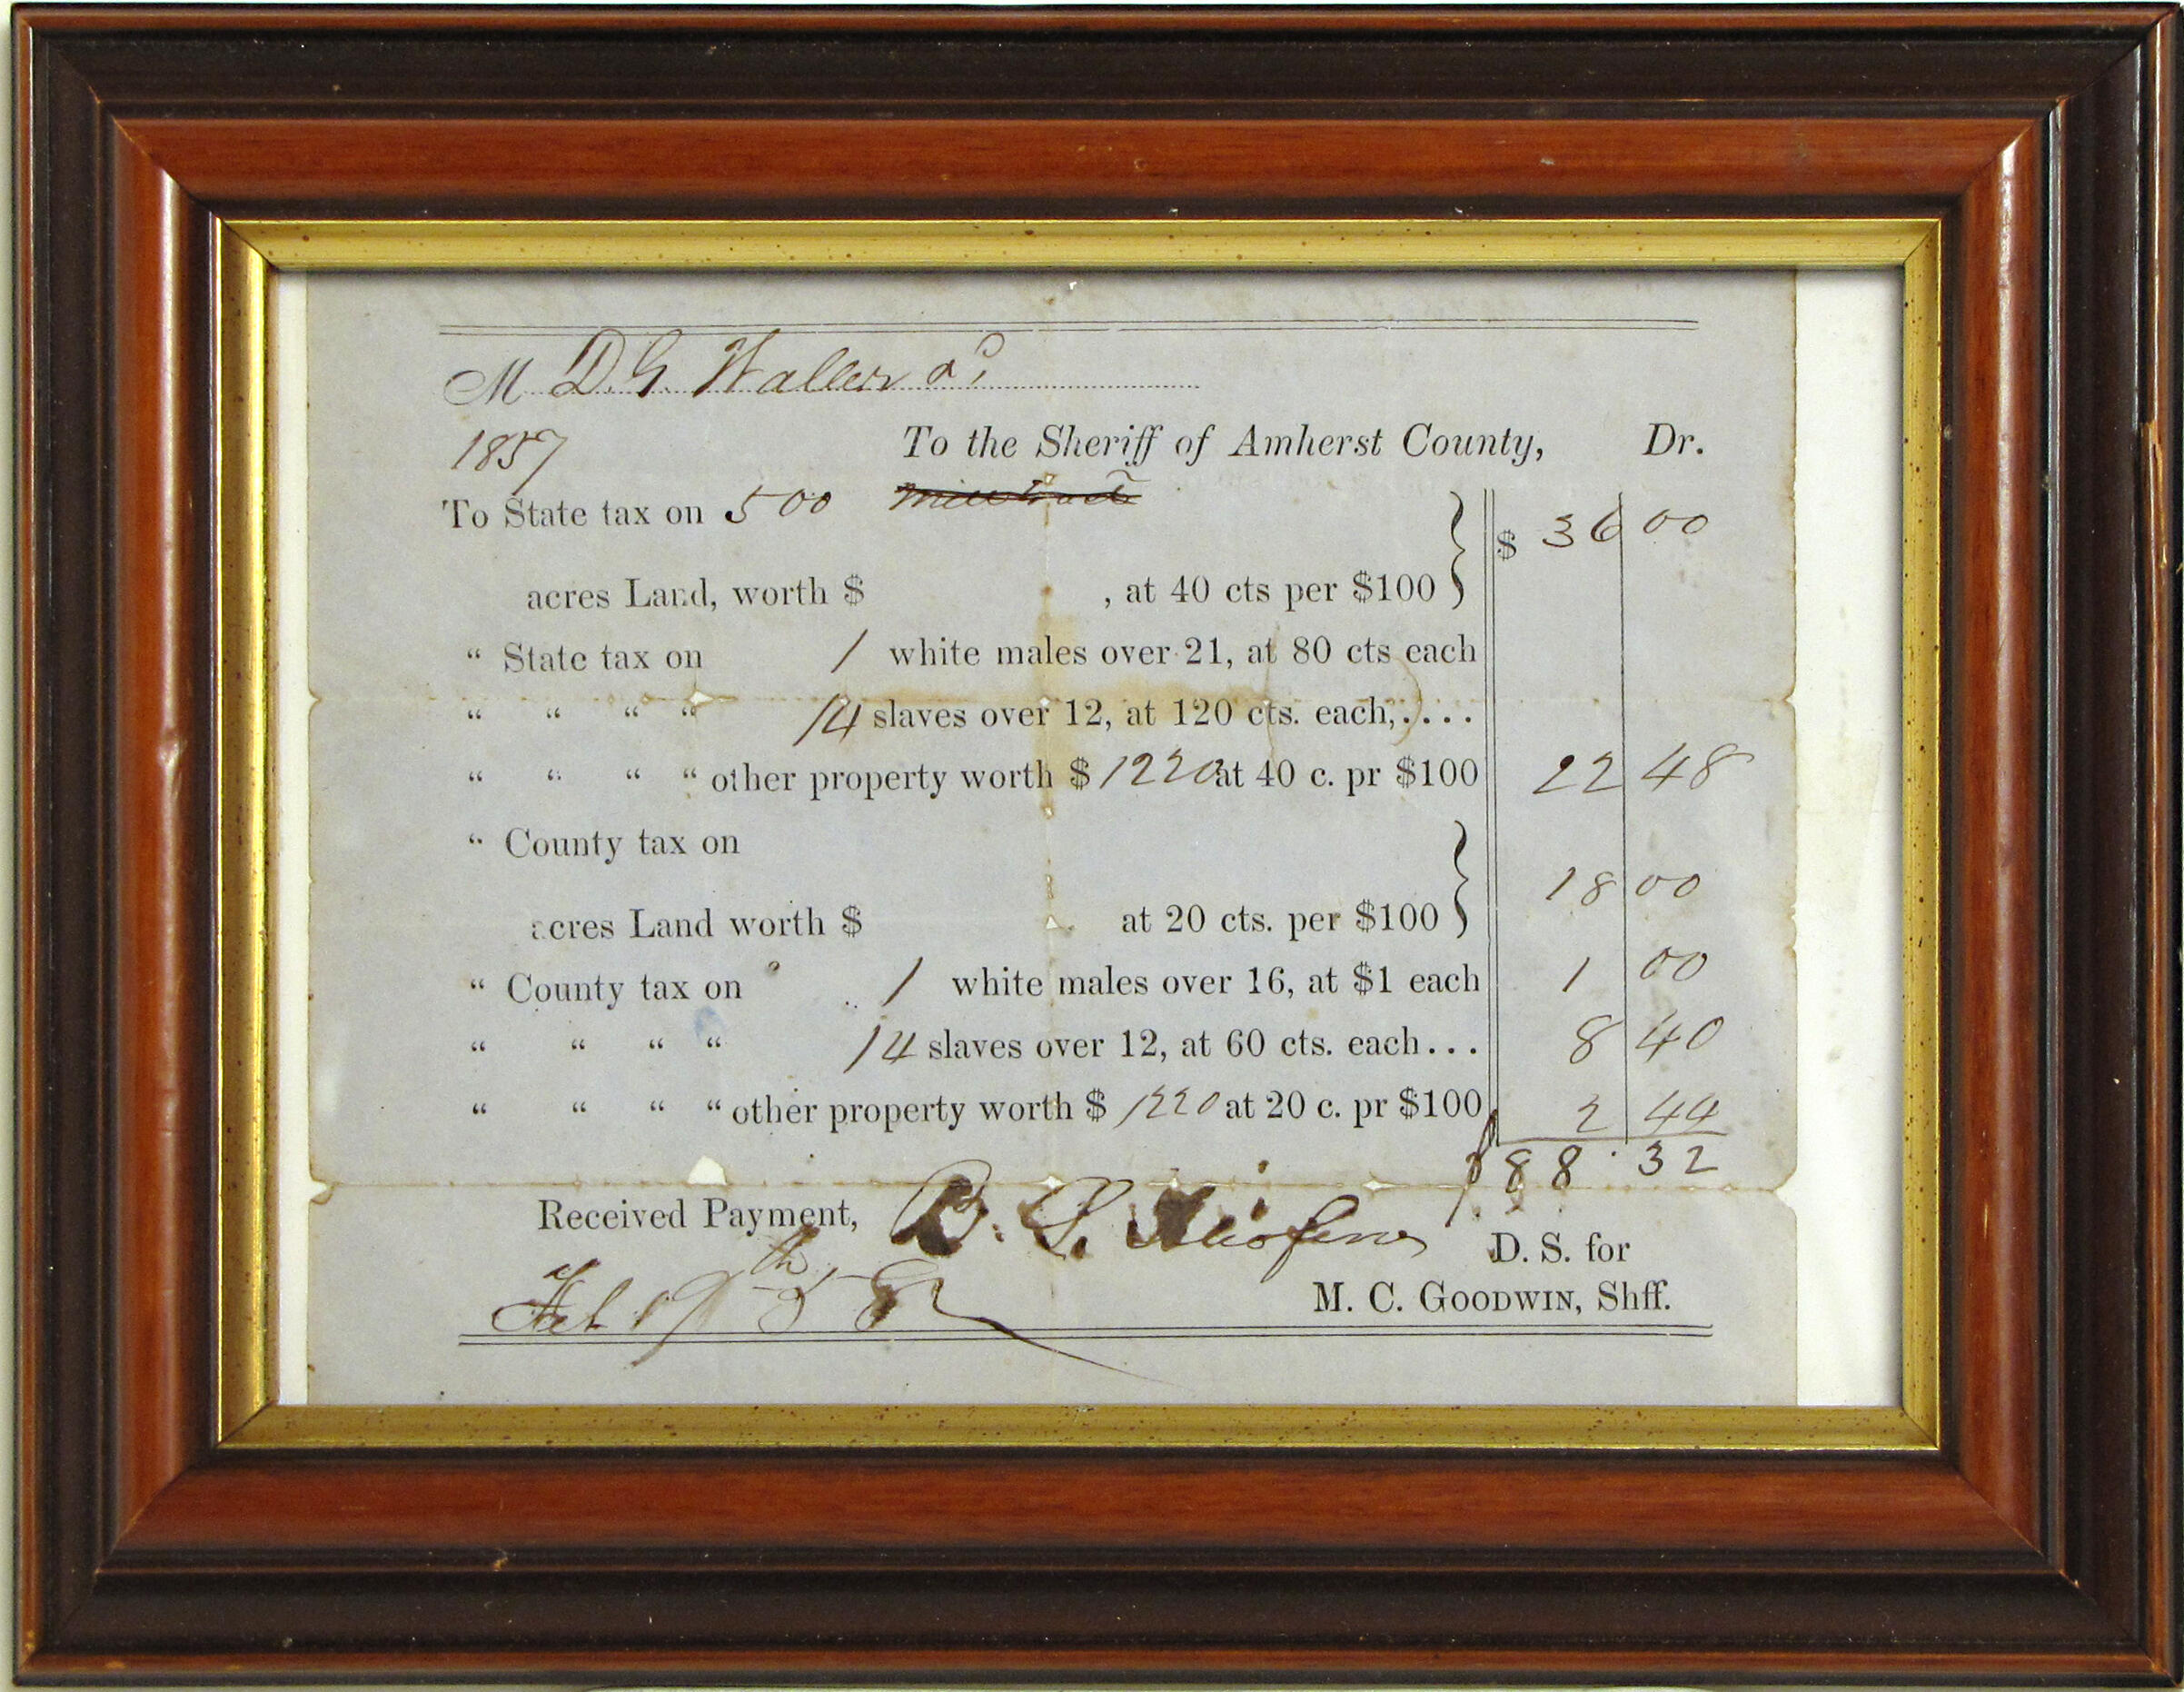 M D. G. Waller
1857 To the Sheriff of Amherst County, Dr.
To State tax on 500
acres Land, worth $ , at 40 cts per $100 } $ 36 00
“ State tax on 1 white males over 21, at 80 cts each
“ “ “ “ 14 slaves over 12, at 120 cts. each,....
“ “ “ “ other property worth $ 1220 at 40 c. pr $100 22 48
“ County tax on
acres Land worth $ at 20 cts. per $100 } 18 00
“ County tax on 1 white males over 16, at $1 each 1 00
“ “ “ “ 14 slaves over 12, at 60 cts. each... 8 40
“ “ “ “ other property worth $ 1220 at 20 c. pr $100 2 44
$ 88 . 32
Received Payment, D. S. for
Feb 19th 58 M. C. GOODWIN, Shff.